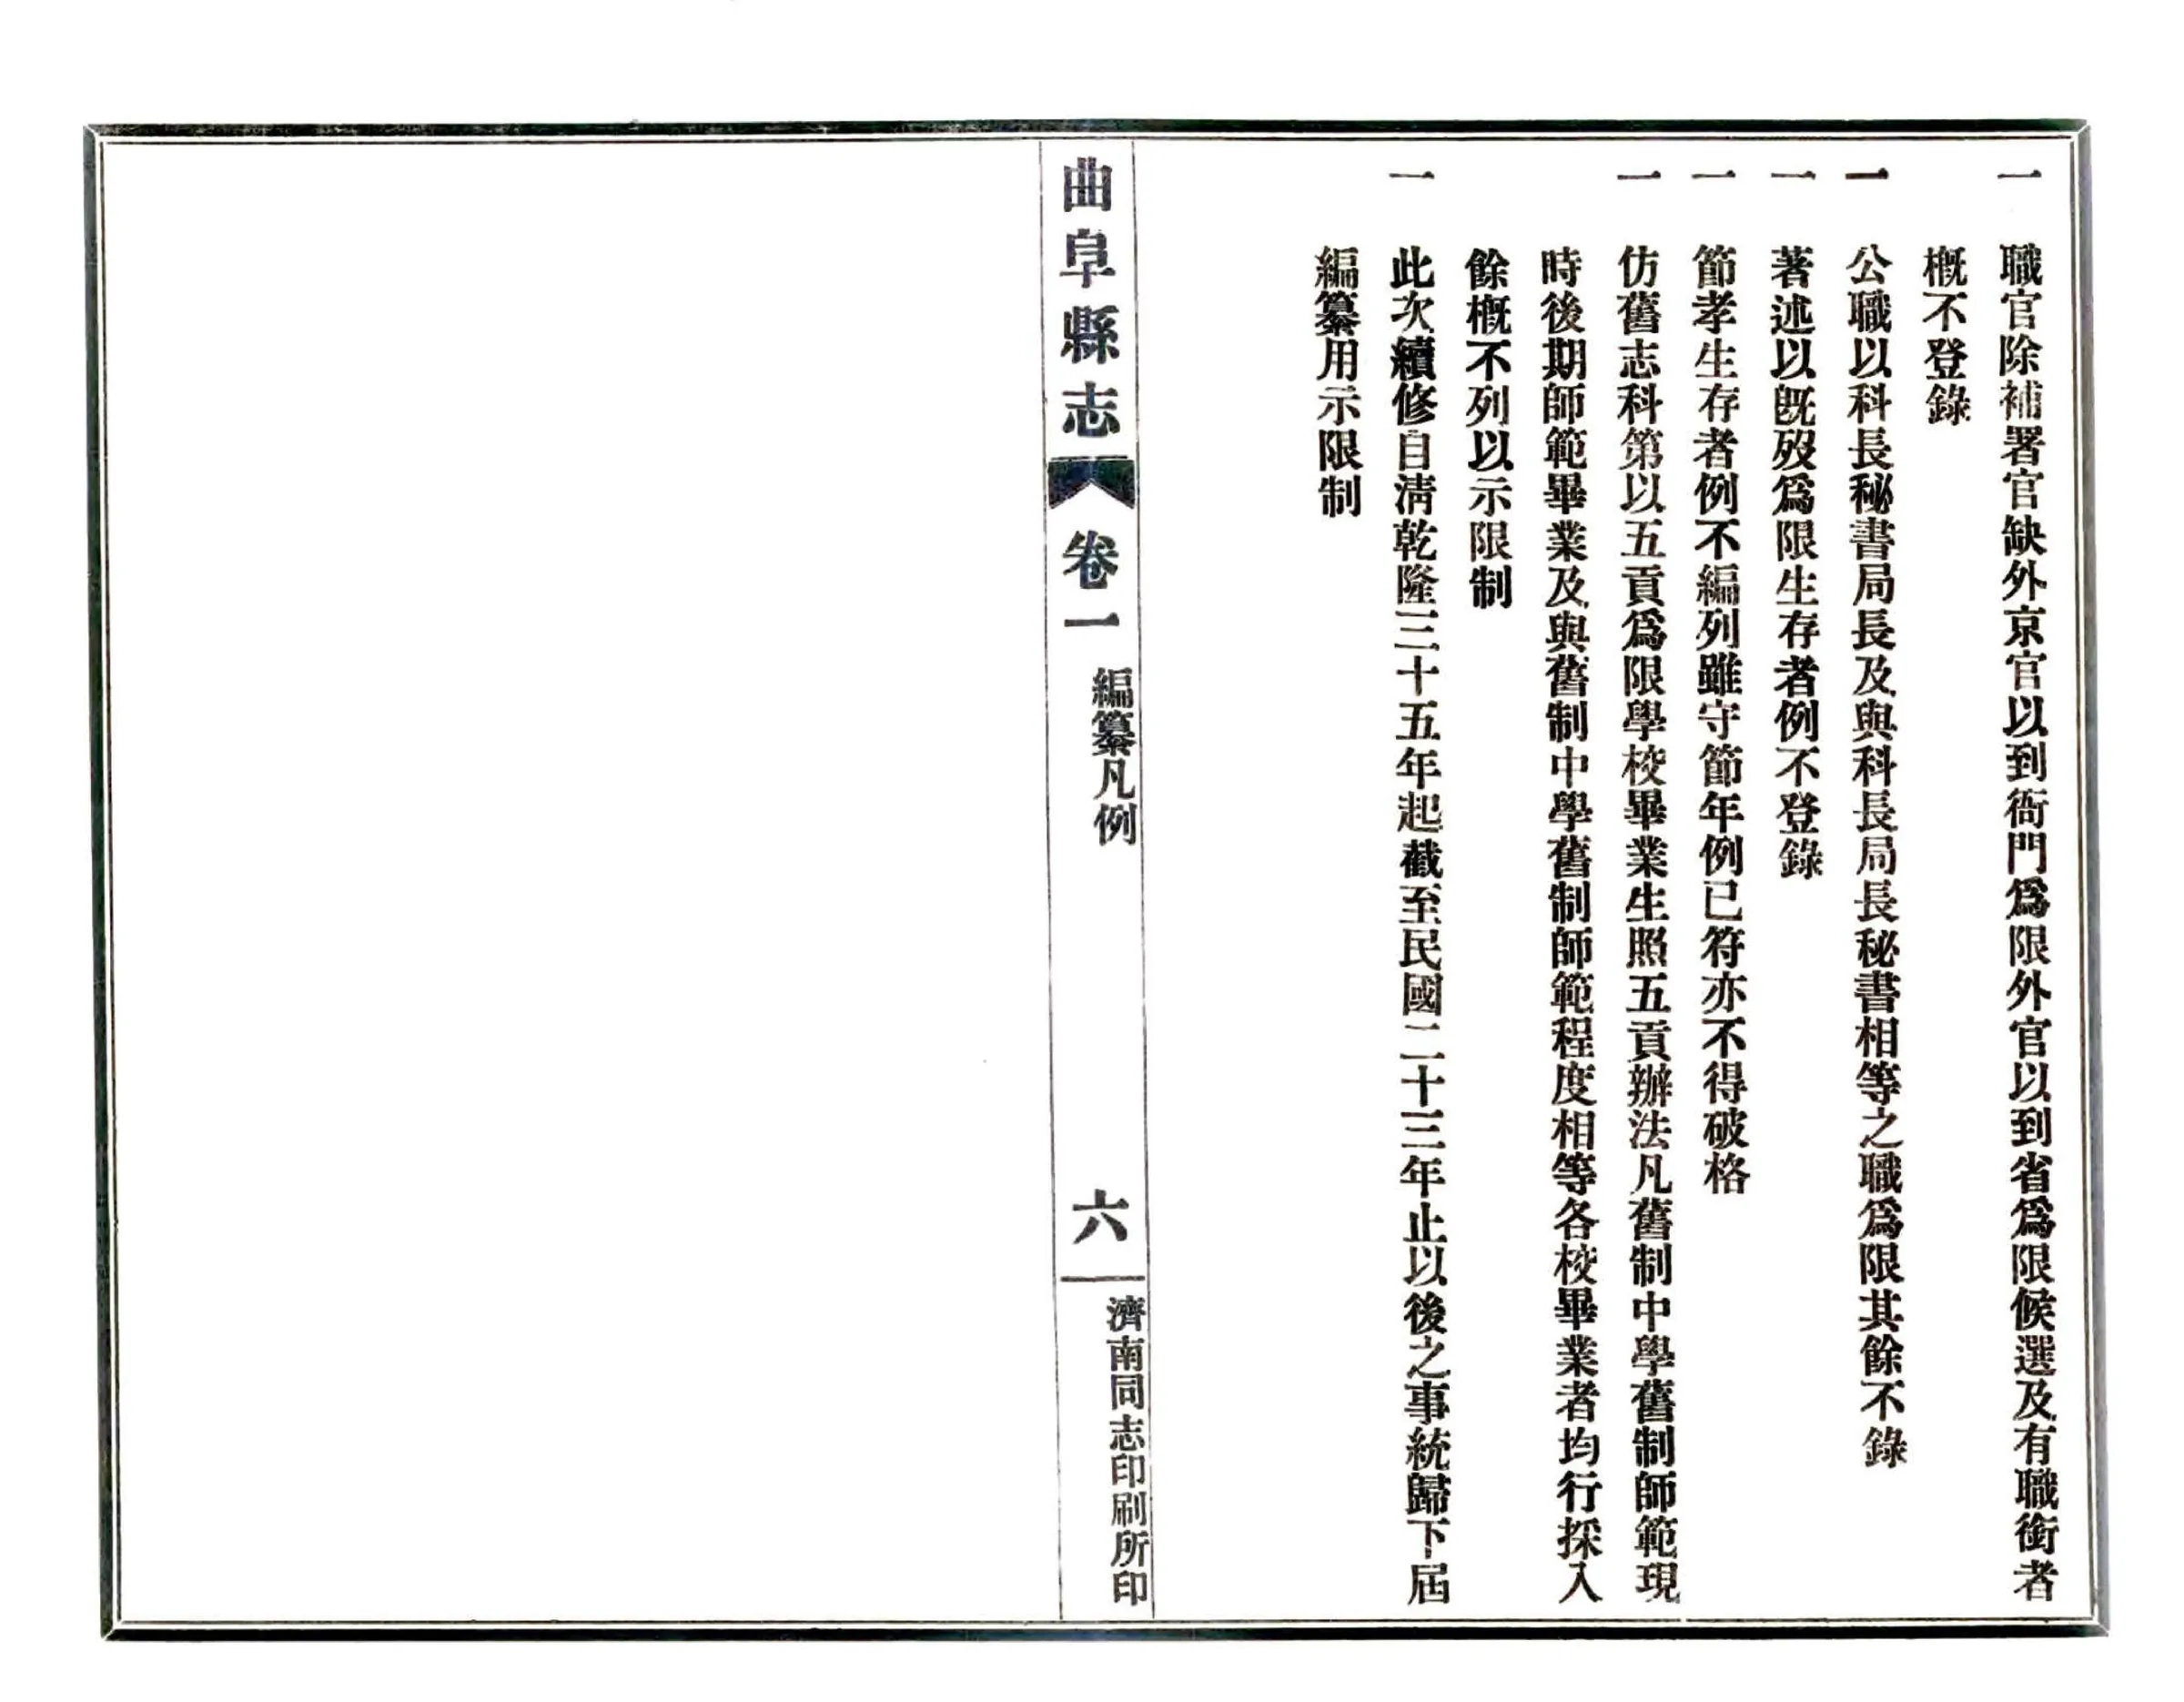 一 職官除補署官缺外京官以到衙門爲限外官以到省爲限候選及有職銜者
概不登錄
一 公職以科長秘書局長及與科長局長秘書相等之職爲限其餘不錄
一 著述以旣歿爲限生存者例不登錄
一 節孝生存者例不編列雖守節年例已符亦不得破格
一 仿舊志科第以五貢爲限學校畢業生照五貢辦法凡舊制中學舊制師範現
時後期師範畢業及與舊制中學舊制師範程度相等各校畢業者均行採入
餘概不列以示限制
一 此次續修自淸乾隆三十五年起截至民國二十三年止以後之事統歸下屆
編纂用示限制
曲阜縣志 卷一 編纂凡例 六 濟南同志印刷所印